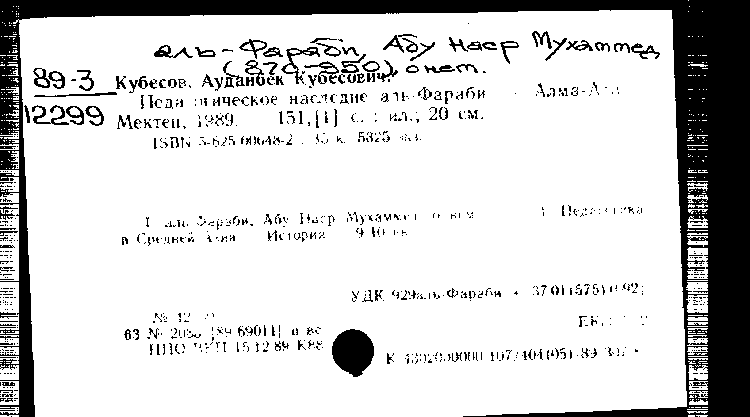 аль-Фараби, Абу Наср Мухаммед
(870-950), о нем.
89-3
12299
Кубесов, Ауданбек Кубесович.
Педагогическое наследие аль-Фараби Алма-Ата
Мектеп, 1989. 151,[1] с. : ил.; 20 см.
ISBN 5-625-00648-2 : 35 к. 5825
1. аль-Фараби, Абу Наср Мухаммед о нем 1. Педагогика
в Средней Азии История 9-10 вв
УДК 929аль-Фараби + 37.01(575)(092)
№ 12
63 № [89-69011] п вс
НПО ВКП 15.12.89 К88
К 107/404(05)-89